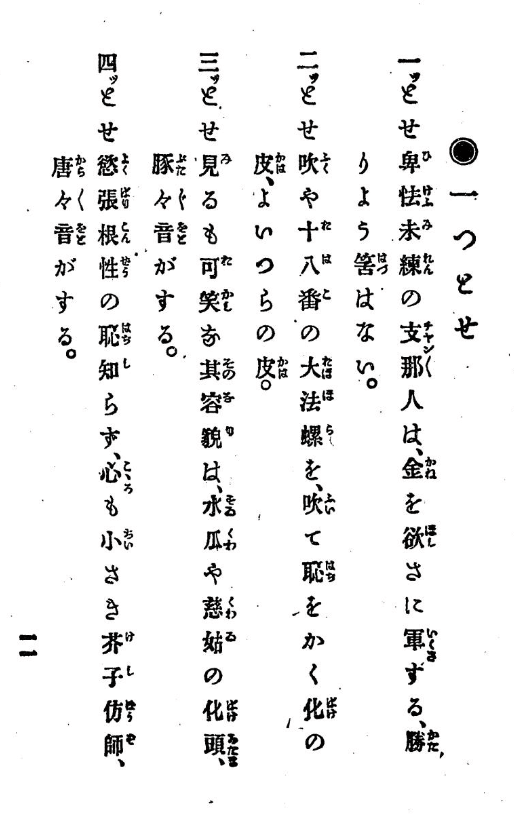 ◉一つとせ
一ツとせ卑怯未練の支那人は、金を欲さに軍する、勝
りよう筈はない。
二ツとせ吹や十八番の大法螺を、吹て恥をかく化の
皮、よいつらの皮。
三ツとせ見るも可笑な其容貌は、水瓜や慈姑の化頭、
豚々音がする。
四ツとせ慾張根性の恥知らず、心も小さき芥子仿師、
唐々音がする。
一一